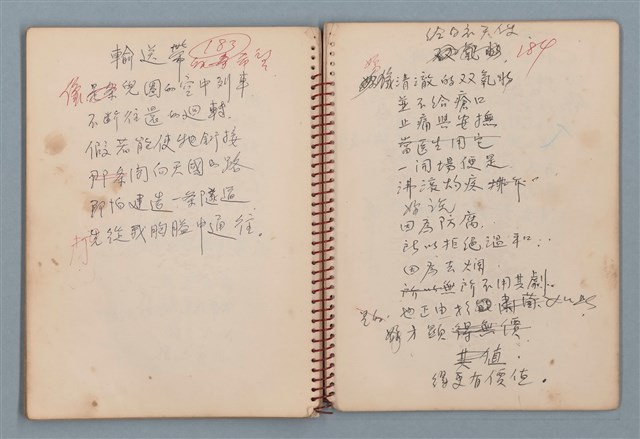 輸送帶
183
像是条兒園的空中列車
不断往還的迴轉
假若能使牠銜接
那条開向天國的路
那怕建造一条隧道
先從我胸膛中通往。
打
給白衣天使
184
清澈的双氧水
並不給瘡口
止痛與安撫
當医生用它
一開場便是
沸滾灼疫
好說
因為防腐
所以拒絕溫和..
因為去爛
所不用其劇.
也正由於
才顯得無價
其值.
纔更有價值.